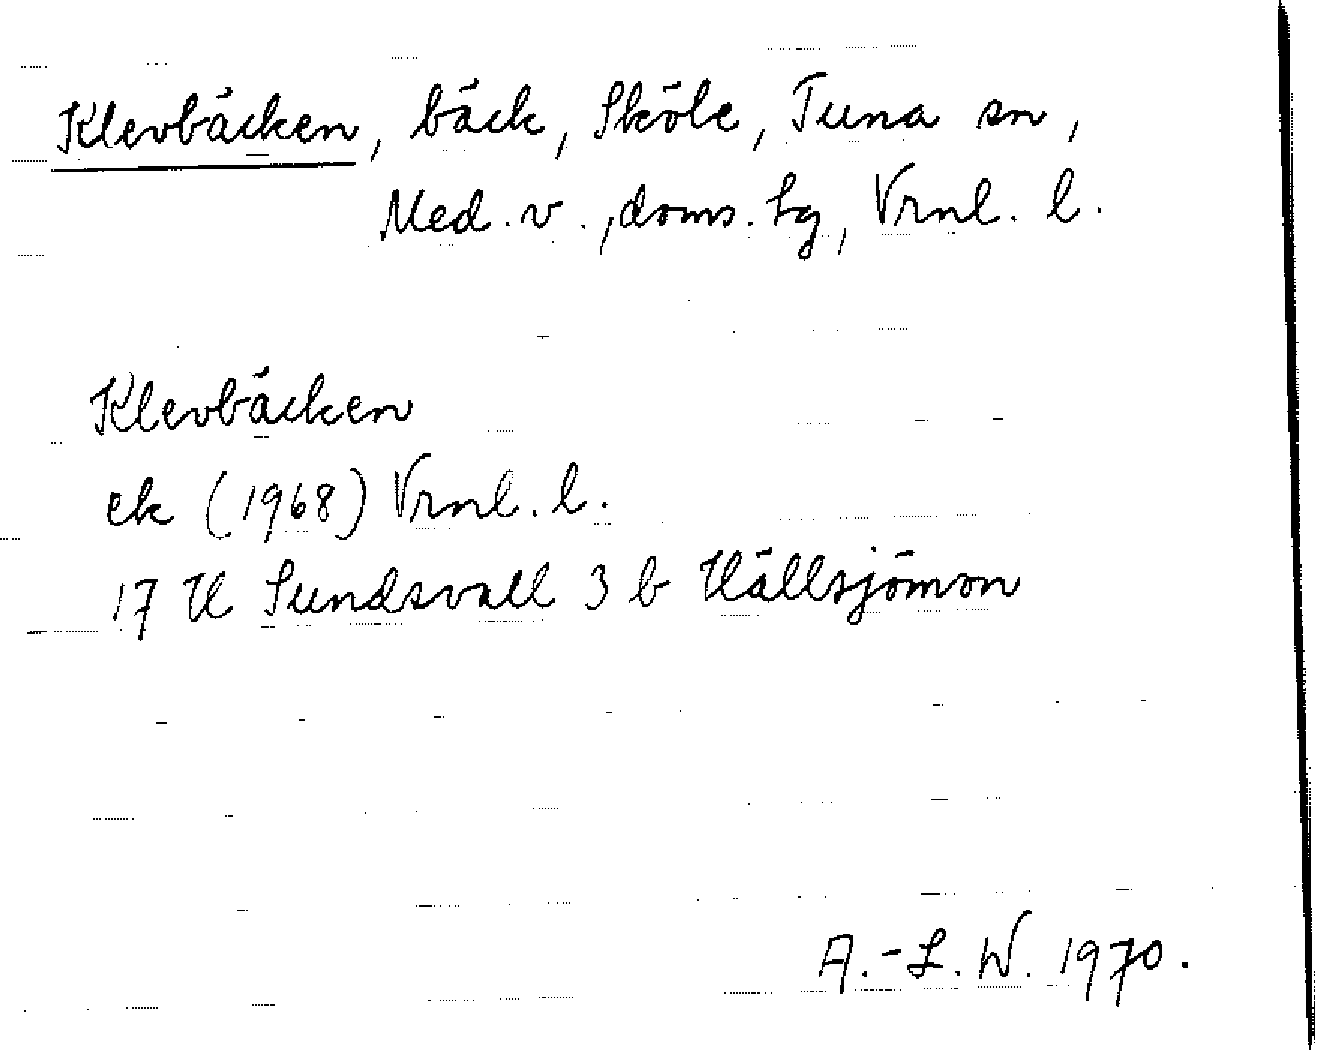 Klevbäcken, bäck, Sköle, Tuna sn,
Med. v., doms. hg, Vrnl. l.
Klevbäcken
ek (1968) Vrnl. l.
17 H Sundsvall 3 b Hällsjömon
A.-L. W. 1970.